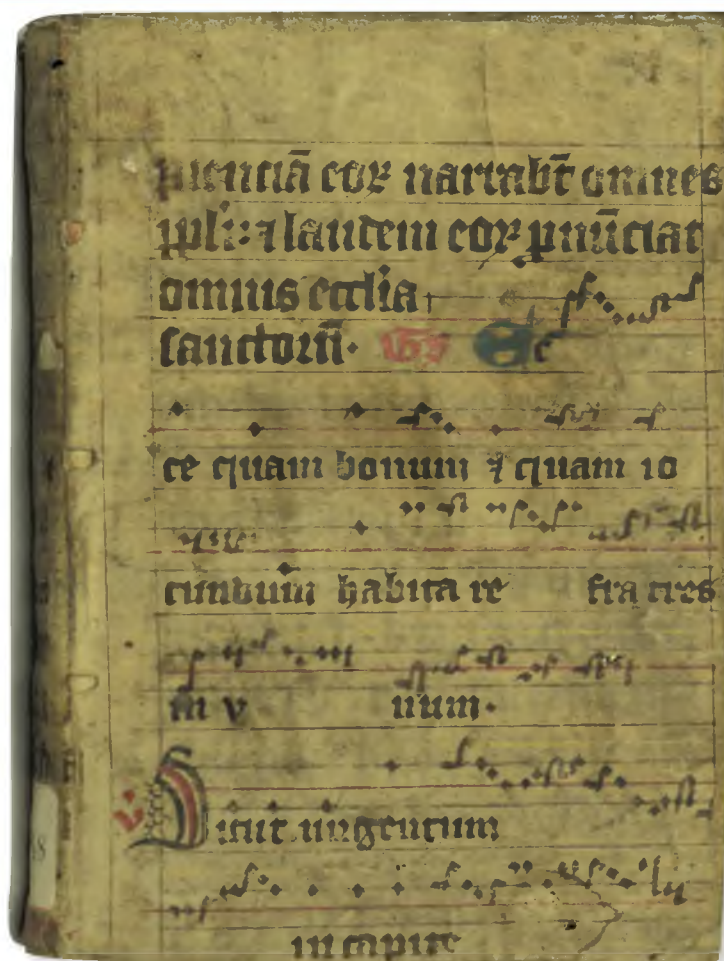 pienciā eoꝝ narrabūt omnes
ppłi: ⁊ laudem eoꝝ pnūciat
omnis ecclia
sanctorū. Gͬ Ec
ce quam bonum ⁊ quam io
cundum habita re fra tres
in v num.
v̾ Sicut ungentum
in capite